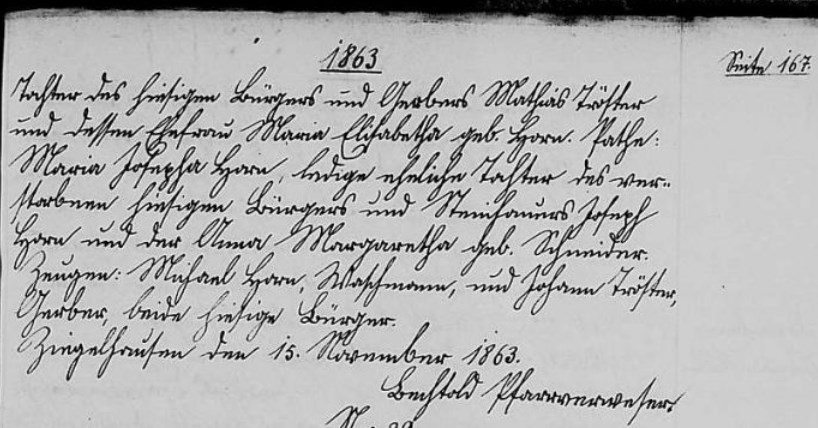 1863
Seite 167.
Tochter des hiesigen Bürgers und Gerbers Mathias Tröster
und dessen Ehefrau Maria Elisabetha geb. Horn. Pathe:
Maria Josepha Horn, ledige eheliche Tochter des ver-
storbenen hiesigen Bürgers und Steinhauers Joseph
Horn und der Anna Margaretha geb. Schneider.
Zeugen: Michael Horn, Waschmann, und Johann Tröster,
Gerber, beide hiesige Bürger.
Ziegelhausen den 15. November 1863.
Bechtold Pfarrverweser.